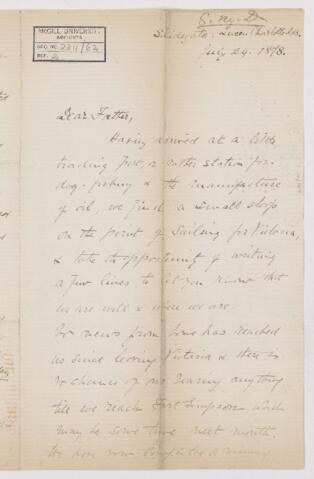 McGILL UNIVERSITY
ARCHIVES
ACC. NO. 2211/62
REF. 2
G. M. D
Skidegate, Queen Charlotte Ids.
July 24. 1878.
Dear Father,
Having arrived at a little
trading post, or rather station for
dog-fishing & the manufacture
of oil, we find a small sloop
on the point of sailing for Victoria,
& take the opportunity of writing
a few lines to let you know that
we are well & where we are.
No news from home has reached
us since leaving Victoria & there is
no chance of our hearing anything
till we reach Fort Simpson which
may be some time next month.
We have now completed a running